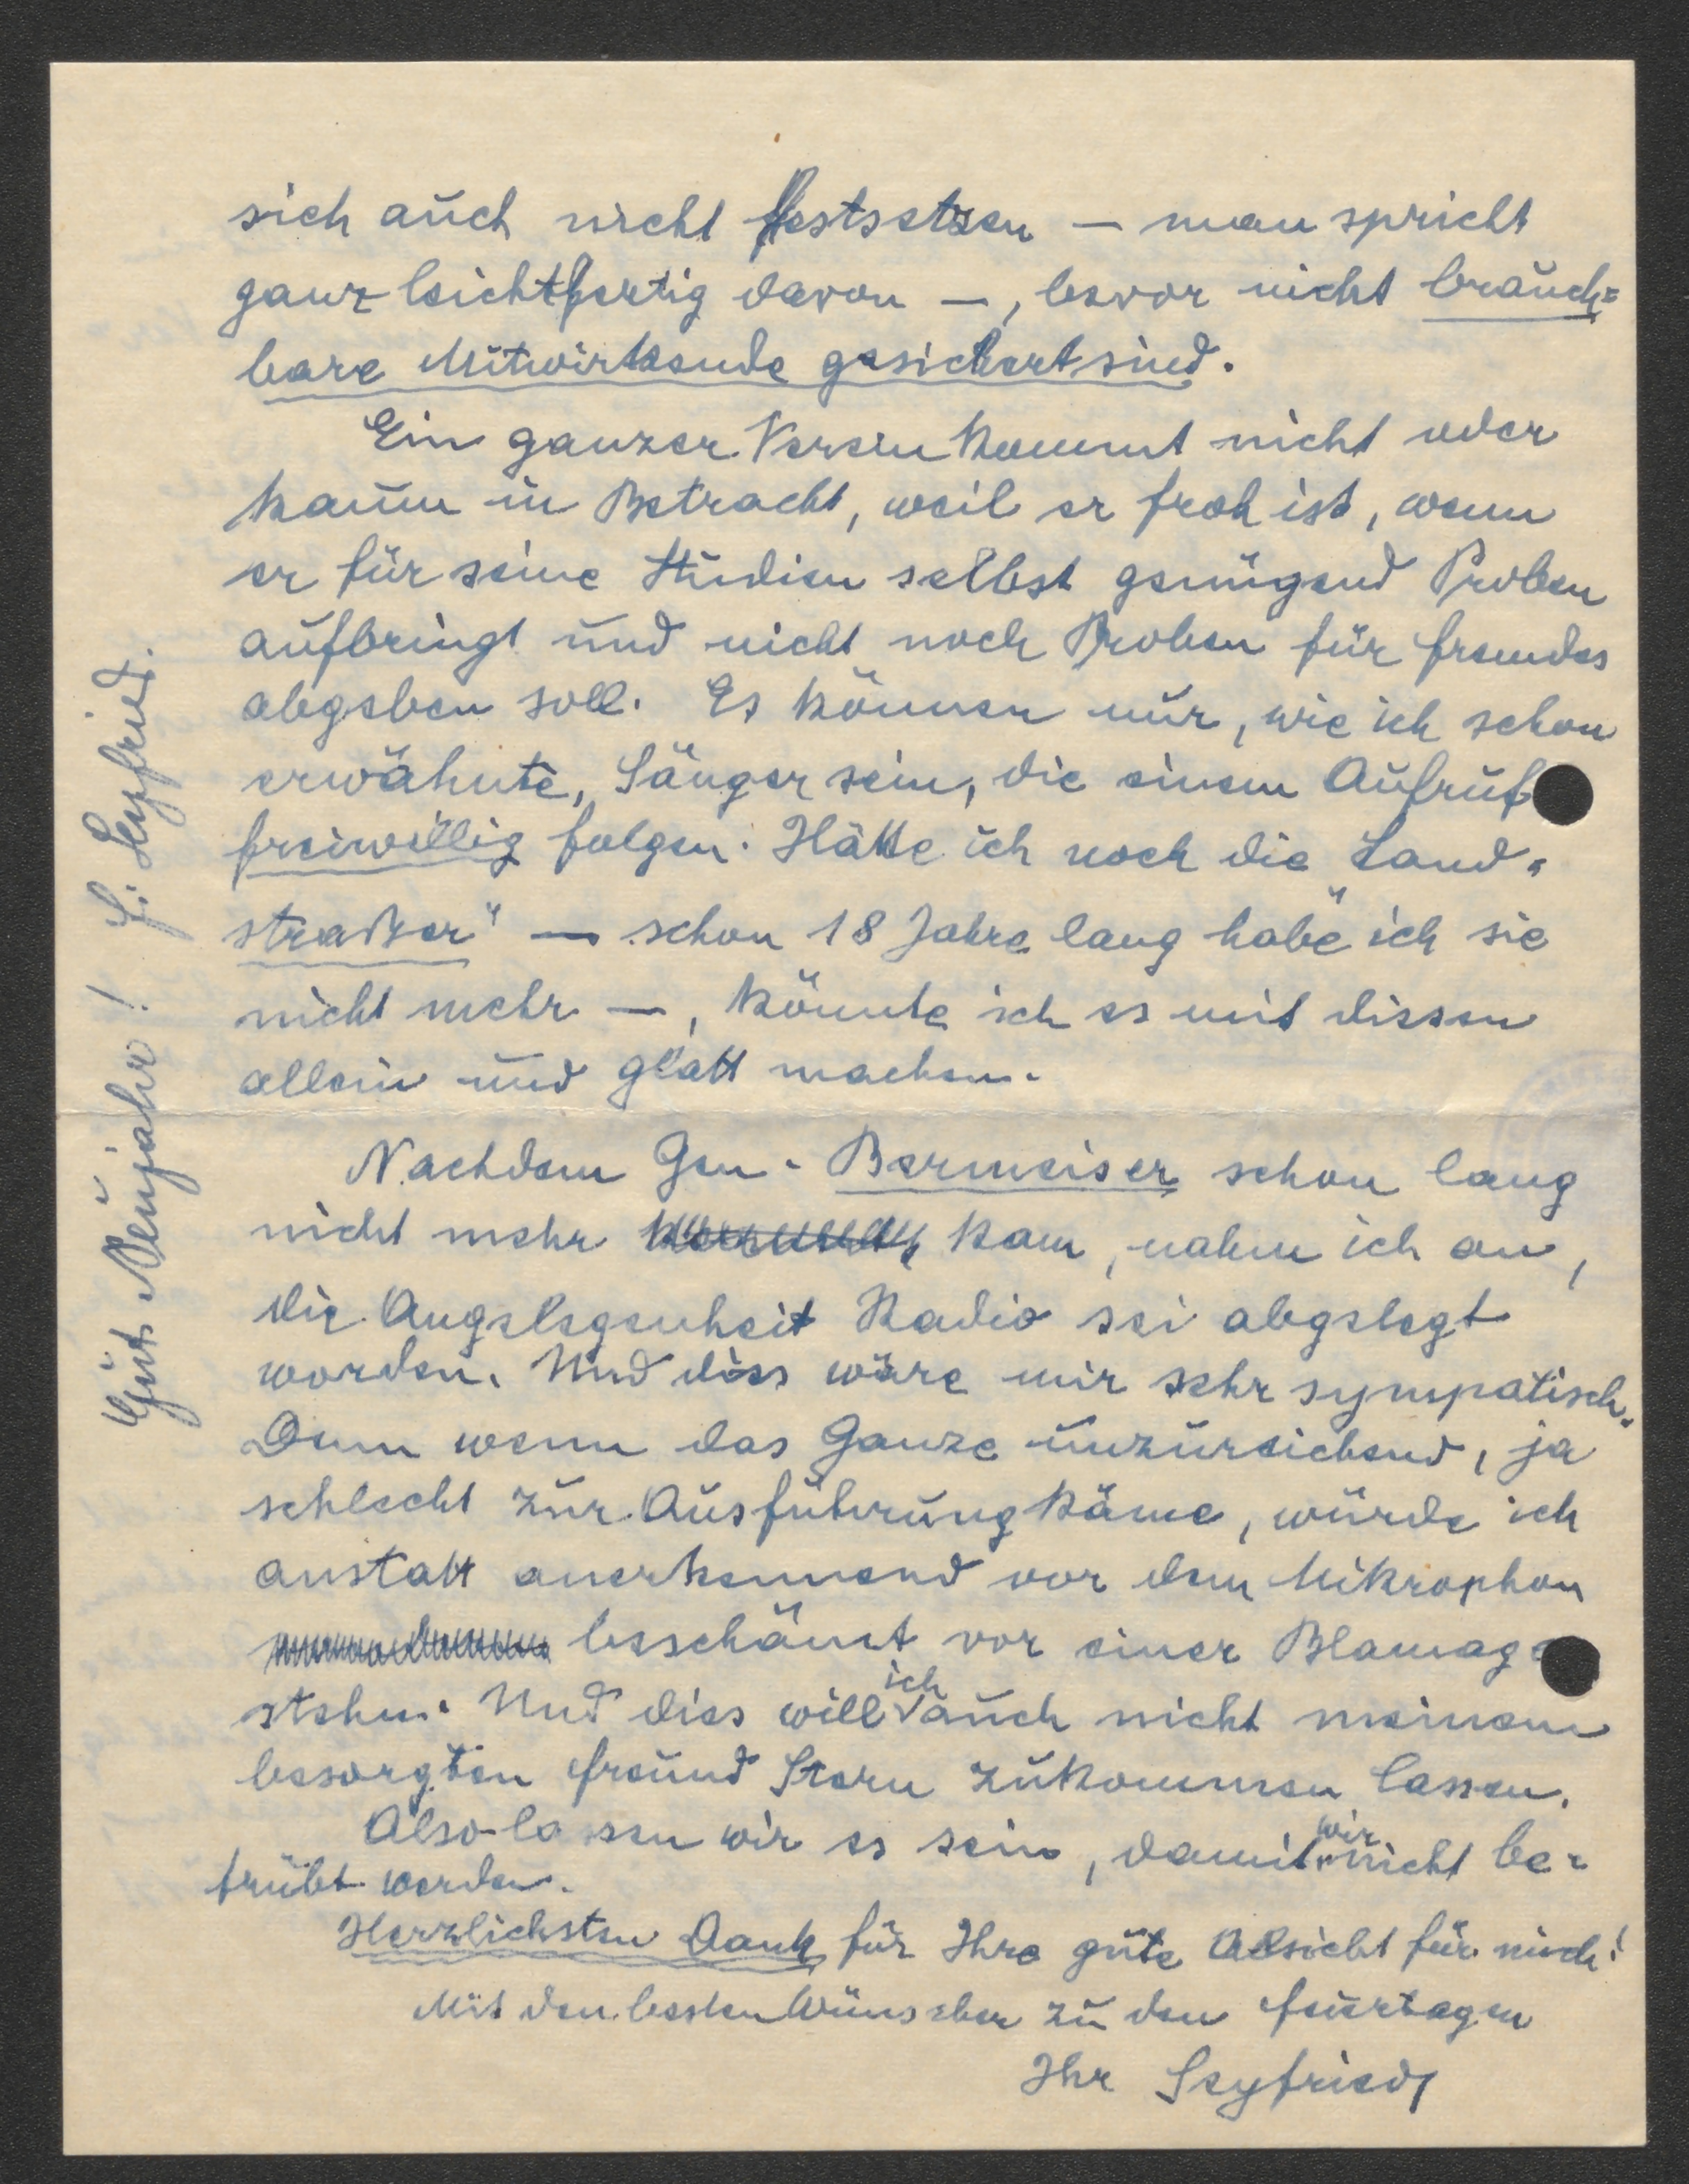 sich auch nicht festsetzen — man spricht
ganz leichtfertig davon —, bevor nicht brauch=
bare Mitwirkende gesichert sind.
Ein ganzer Verein kommt nicht oder
kaum in Betracht, weil er froh ist, wenn
er für seine Studien selbst genügend Proben
aufbringt und nicht noch Proben für fremdes
abgeben soll. Es können nur, wie ich schon
erwähnte, Sänger sein, die einem Aufruf
freiwillig folgen. Hätte ich noch die „Land-
straßer" — schon 18 Jahre lang habe ich sie
nicht mehr —, könnte ich es mit diesen
allein und glatt machen.
Nachdem Gen. Bermeiser schon lang
nicht mehr kam, nahm ich an,
die Angelegenheit Radio sei abgelegt
worden. Und dies wäre mir sehr sympatisch.
Denn wenn das Ganze unzureichend, ja
schlecht zur Ausführung käme, würde ich
anstatt anerkennend vor dem Mikrophon
beschämt vor einer Blamage
stehn. Und dies will ich auch nicht meinem
besorgten Freund Stern zukommen lassen.
Also lassen wir es sein, damit wir nicht be-
trübt werden.
Herzlichsten Dank für Ihre gute Absicht für mich!
Mit den besten Wünschen zu den Feiertagen
Ihr Seyfried
Gut Neujahr! f. Seyfried.